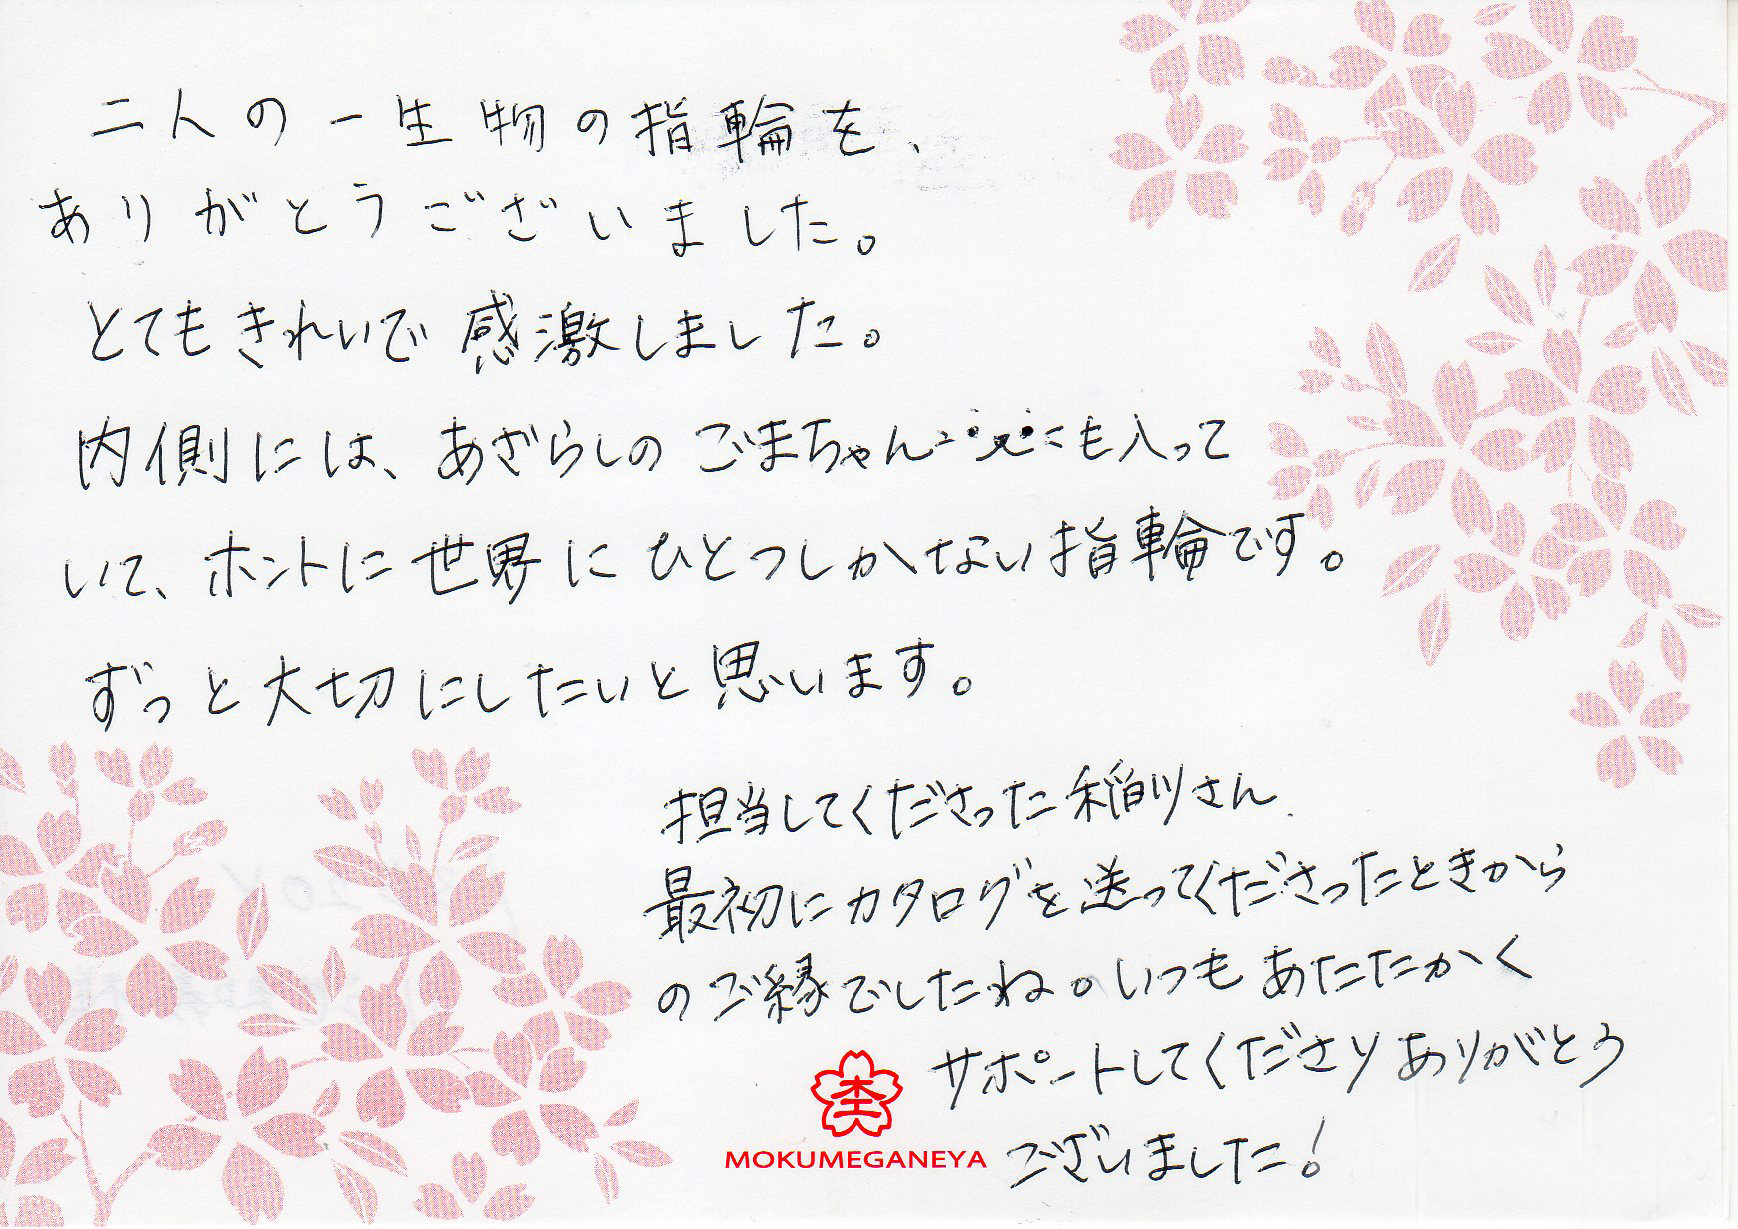 二人の一生物の指輪を、
ありがとうございました。
とてもきれいで感激しました。
内側には、あざらしのごまちゃんも入って
いて、ホントに世界にひとつしかない指輪です。
ずっと大切にしたいと思います。
担当してくださった稲川さん、
最初にカタログを送ってくださったときから
のご縁でしたね。いつもあたたかく
サポートしてくださりありがとう
ございました!
MOKUMEGANEYA